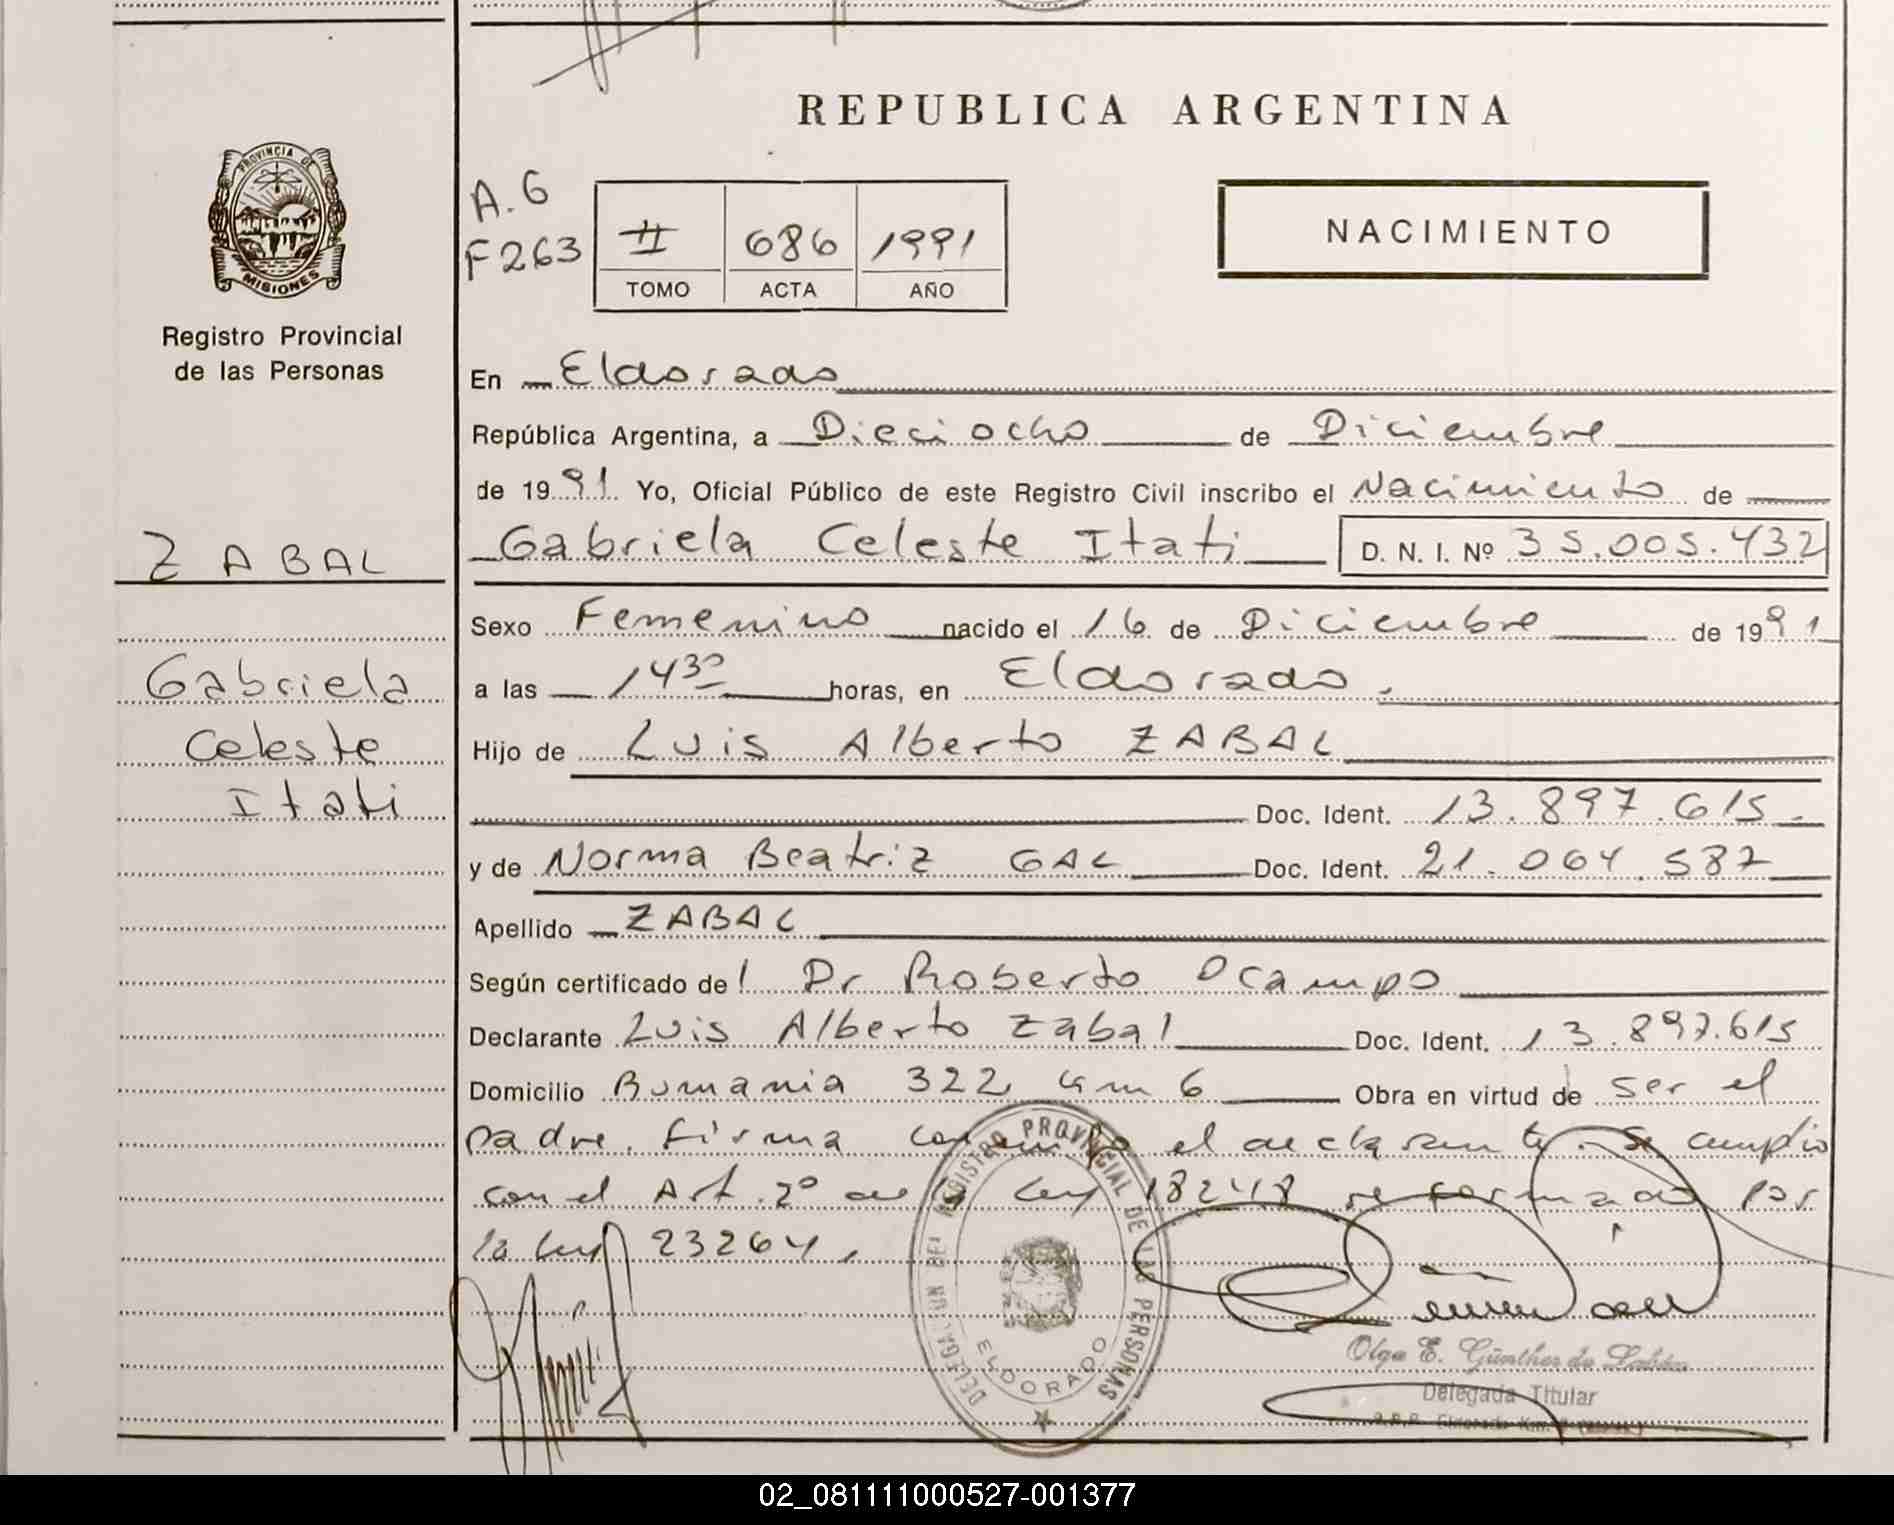 REPUBLICA ARGENTINA
PROVINCIA DE
MISIONES
Registro Provincial
de las Personas
A.G
F263
II 686 1991
TOMO ACTA AÑO
NACIMIENTO
En Eldorado
República Argentina, a Dieciocho de Diciembre
de 1991 Yo, Oficial Público de este Registro Civil inscribo el Nacimiento de
ZABAL
Gabriela Celeste Itati D. N. I. Nº 35.005.432
Sexo Femenino nacido el 16 de Diciembre de 1991
Gabriela
a las 14 30 horas, en Eldorado.
Celeste
Hijo de Luis Alberto ZABAL
Itati
Doc. Ident. 13.897.615.
y de Norma Beatriz GAL Doc. Ident. 21.064.587
Apellido ZABAL
Según certificado del Dr Roberto Ocampo
Declarante Luis Alberto Zabal Doc. Ident. 13.897.615
Domicilio Rumania 322 km 6 Obra en virtud de ser el
padre. Firma conmigo el declarante. Se cumplio
con el Art. 2º de la ley 18248 reformado por
la ley 23264.
DELEGACION DEL REGISTRO PROVINCIAL DE LAS PERSONAS
ELDORADO
Olga E. Günther de
Delegada Titular
02_081111000527-001377